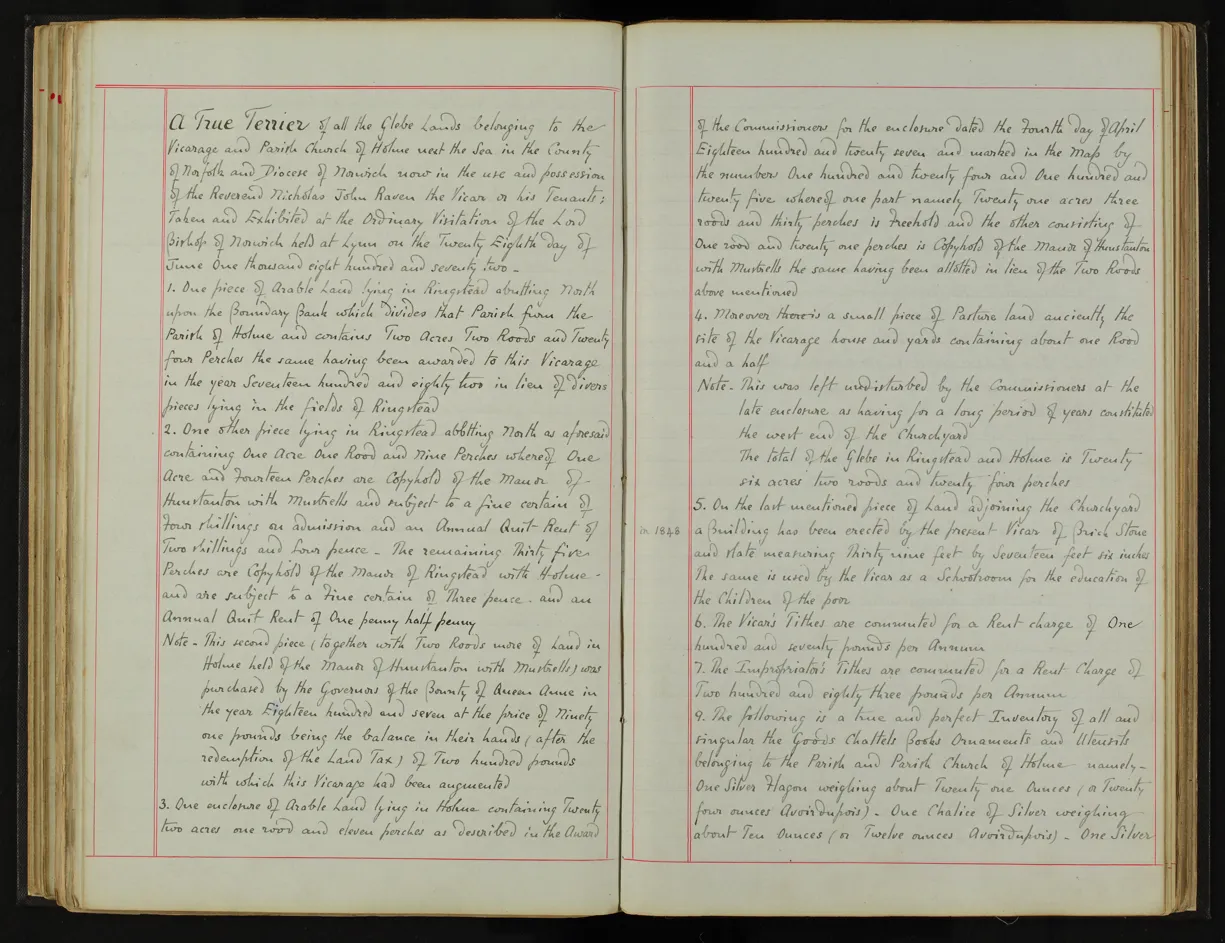 A True Terrier of all the Glebe Lands belonging to the
Vicarage and Parish Church of Holme next the Sea in the County
of Norfolk and Diocese of Norwich now in the use and possession
of the Reverend Nicholas John Raven the Vicar or his Tenants;
Taken and Exhibited at the Ordinary Visitation of the Lord
Bishop of Norwich held at Lynn on the Twenty Eighth day of
June One thousand eight hundred and seventy two -
1. One piece of Arable Land lying in Ringstead abutting North
upon the Boundary Bank which divides that Parish from the
Parish of Holme and contains Two Acres Two Roods and Twenty
four Perches the same having been awarded to this Vicarage
in the year Seventeen hundred and eighty two in lieu of divers
pieces lying in the fields of Ringstead
2. One other piece lying in Ringstead abbtting North as aforesaid
containing One Acre One Rood and Nine Perches whereof One
Acre and Fourteen Perches are Copyhold of the Manor of -
Hunstanton with Mustrells and subject to a fine certain of
Four shillings on admission and an Annual Quit Rent of
Two shillings and Four pence - The remaining Thirty five
Perches are Copyhold of the Manor of Ringstead with Holme -
and are subject to a Fine certain of Three pence - and an
Annual Quit Rent of One penny half penny
Note - This second piece (together with Two Roods more of Land in
Holme held of the Manor of Hunstanton with Mustrells) was
purchased by the Governors of the Bounty of Queen Anne in
the year Eighteen hundred and seven at the price of Ninety
one pounds being the balance in their hands (after the
redemption of the Land Tax) of Two hundred pounds
with which this Vicarage had been augmented
3. One enclosure of Arable Land lying in Holme containing Twenty
two acres one rood and eleven perches as described in the Award
of the Commissioners for the enclosure dated the Fourth day of April
Eighteen hundred and twenty seven and marked in the Map by
the numbers One hundred and twenty four and One hundred and
twenty five whereof one part namely Twenty one acres three
roods and thirty perches is Freehold and the other consisting of
One rood and twenty one perches is Copyhold of the Manor of Hunstanton
with Mustrells the same having been allotted in lieu of the Two Roods
above mentioned
4. Moreover there is a small piece of Pasture land anciently the
site of the Vicarage house and yards containing about one Rood
and a half
Note - This was left undisturbed by the Commissioners at the
late enclosure as having for a long period of years constituted
the west end of the Churchyard
The total of the Glebe in Ringstead and Holme is Twenty
six acres two roods and twenty four perches
5. On the last mentioned piece of Land adjoining the Churchyard
in 1848 a Building has been erected by the present Vicar of Brick Stone
and slate measuring Thirty nine feet by Seventeen feet six inches
The same is used by the Vicar as a Schoolroom for the education of
the Children of the poor
6. The Vicar's Tithes are commuted for a Rent charge of One
hundred and seventy pounds per Annum
7. The Impropriator's Tithes are commuted for a Rent Charge of
Two hundred and eighty three pounds per Annum
9. The following is a true and perfect Inventory of all and
singular the Goods Chattels Books Ornaments and Utensils
belonging to the Parish and Parish Church of Holme namely -
One Silver Flagon weighing about Twenty one Ounces (or Twenty
four ounces Avoirdupois) - One Chalice of Silver weighing
about Ten Ounces (or Twelve ounces Avoirdupois) - One Silver